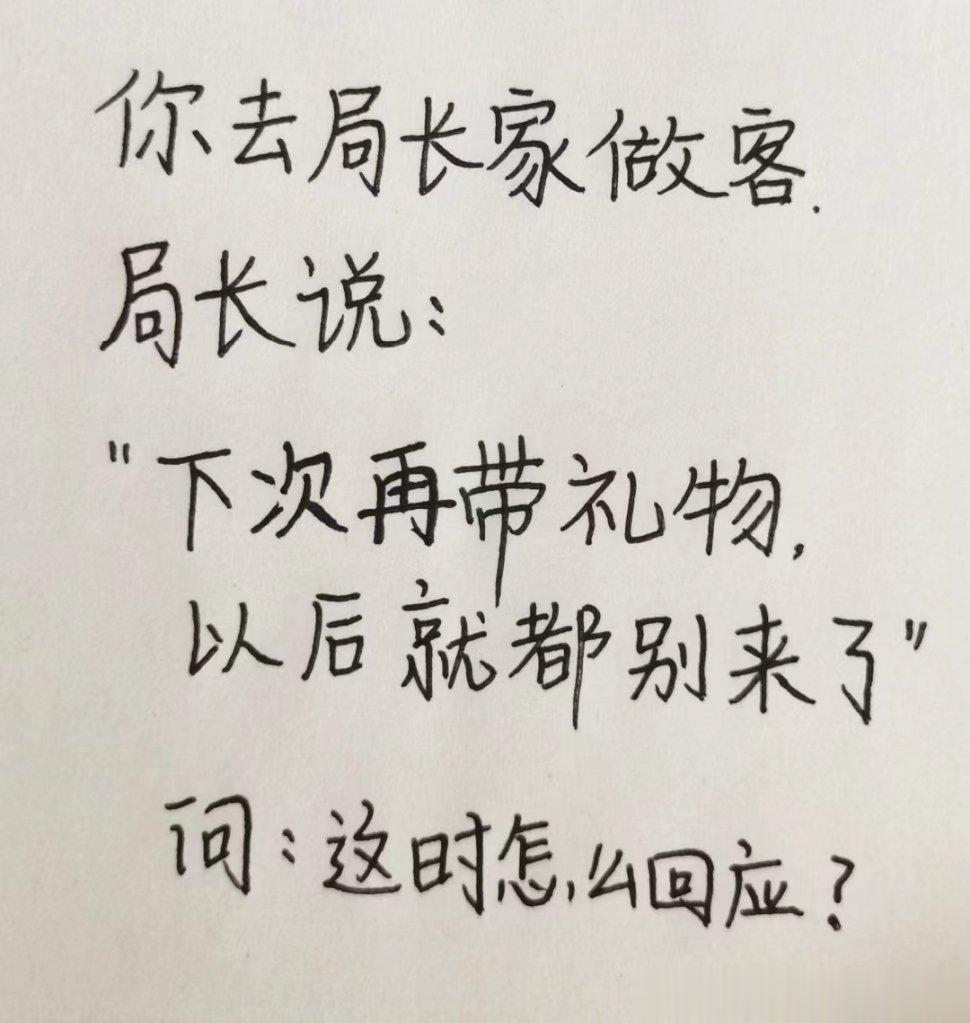 你去局长家做客.
局长说:
"下次再带礼物,
以后就都别来了"
问:这时怎么回应?